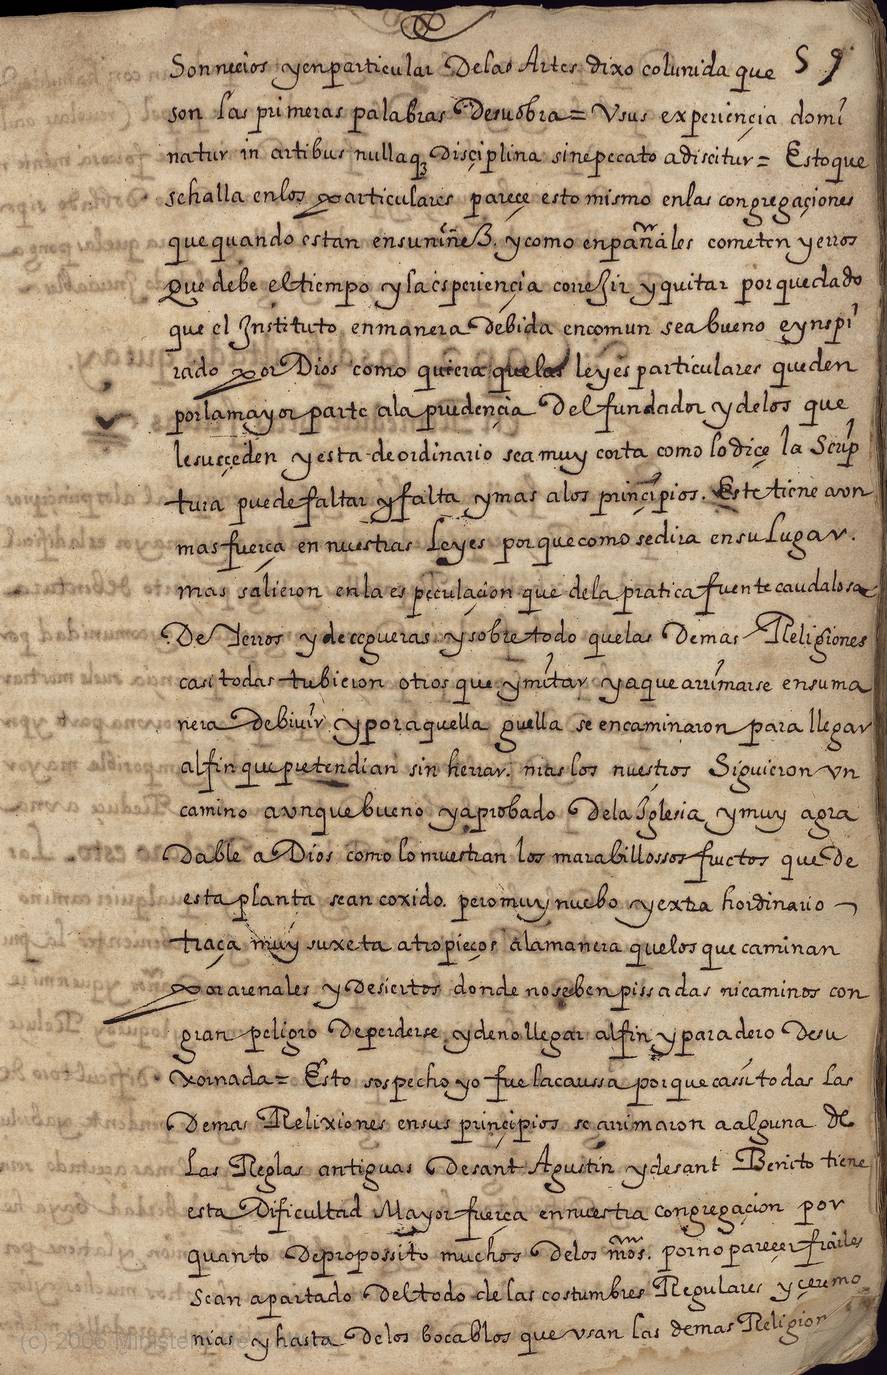 Son necios y en particular De las Artes dixo colunida que 59
son las primeras palabras Desuobra = Vsus experiençia domi
natur in artibus nullaq Disçiplina sinepecato adiscitur = Estoque
sehalla enlos particulares pareçe esto mismo enlas congregaçiones
que quando estan ensuniñez. y como enpañales cometen yerros
Que debe eltiempo y laesperiençia coreJir y quitar porquedado
que el Jnstituto enmanera Debida encomun sea bueno eynspi
rado por Dios como quiera quelas leyes particulares queden
porlamayor parte ala prudençia Delfundador y delos que
lesuçeden y esta de ordinario sea muy corta como lo diçe la Scrip
tura puede faltar y falta y mas alos prinçipios. Este tiene aun
mas fuerça en nuestras Leyes porque como sedira ensu Lugar.
mas salieron enla especulaçion que dela pratica fuente caudalosa
De Yerros y de çegueras. y sobre todo quelas Demas Religiones
casi todas tubieron otros que ymitar y aque arrimarse ensuma
nera Debivir y por aquella guella se encaminaron para llegar
alfin que pretendian sin herrar. mas los nuestros Siguieron vn
camino avnque bueno y aprobado Dela Iglesia y muy agra
Dable a Dios como lo muestran los marabillossos fructos que De
esta planta sean coxido. pero muy nuebo y extra hordinario
traça muy suxeta atropieços alamanera quelos que caminan
por arenales y Desiertos donde no seben pissadas ni caminos con
gran peligro Deperderse y deno llegar alfin y paradero Desu
Xornada = Esto sospecho yo fue lacaussa porque cassi todas las
Demas Relixiones ensus prinçipios se arrimaron a alguna de
Las Reglas antiguas Desant Agustin y desant Benito tiene
esta Dificultad Mayor fuerça en nuestra congregaçion por
quanto Depropossito muchos Delos nros. porno pareçer frailes
Sean apartado Deltodo de las costumbres Regulares y çeremo
nias y hasta Delos bocablos que vsan las demas Religion
(c) 2006 Minister